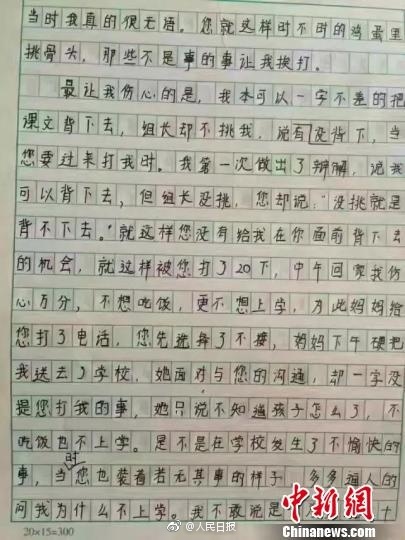 当时我真的很无语。您就这样时不时的鸡蛋里
挑骨头，那些不是事的事让我挨打。
最让我伤心的是，我本可以一字不差的把
课文背下去，组长却不挑我，说我没背下，当
您要过来打我时。我第一次做出了辩解，说我
可以背下去，但组长没挑，您却说：“没挑就是
背不下去。”就这样您没有给我在你面前背下去
的机会，就这样被您打了20下，中午回家我伤
心万分，不想吃饭，更不想上学，为此妈妈给
您打了电话，您先选择了不接，妈妈下午硬把
我送去了学校，她面对与您的沟通，却一字没
提您打我的事，她只说不知道孩子怎么了，不
吃饭也不上学。是不是在学校发生了不愉快的
事，当时您也装着若无其事的样子，多多逼人的
问我为什么不上学。我不敢说是
20×15=300
@人民日报
中新网
Chinanews.com